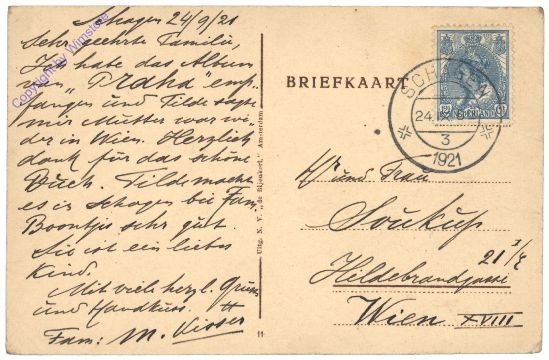 Schagen 24/9/21
Sehr geehrte Familie,
Ich habe das Album
von "Praha" emp-
fangen und Tilde sagte
mir Mutter war wi
der in Wien. Herzlich
dank für das schöne
Buch. Tilde macht
es in Schagen bei Fam.
Boontjes sehr gut.
Sie ist ein liebes
Kind.
Mit viele herzl. Grüss
und Handkuss.
Fam: M. Visser
Copyright by Wignstore
Uitg. N. V. „de Bijenkorf," Amsterdam
11
BRIEFKAART
NEDERLAND
SCHAGEN
24.
3
1921
Hr und Frau
Soukup
Hildebrandgasse
Wien XVIII